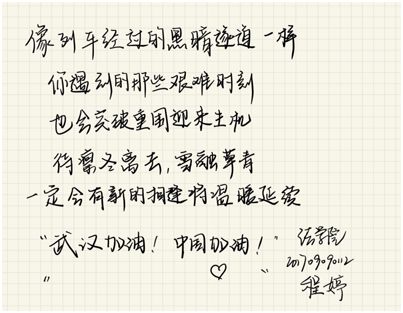 像列车经过的黑暗隧道一样
你遇到的那些艰难时刻
也会突破重围迎来生机
待凛冬离去，雪融草青
一定会有新的相逢将温暖延续
"武汉加油！中国加油！"
法学院
20170909012
程婷